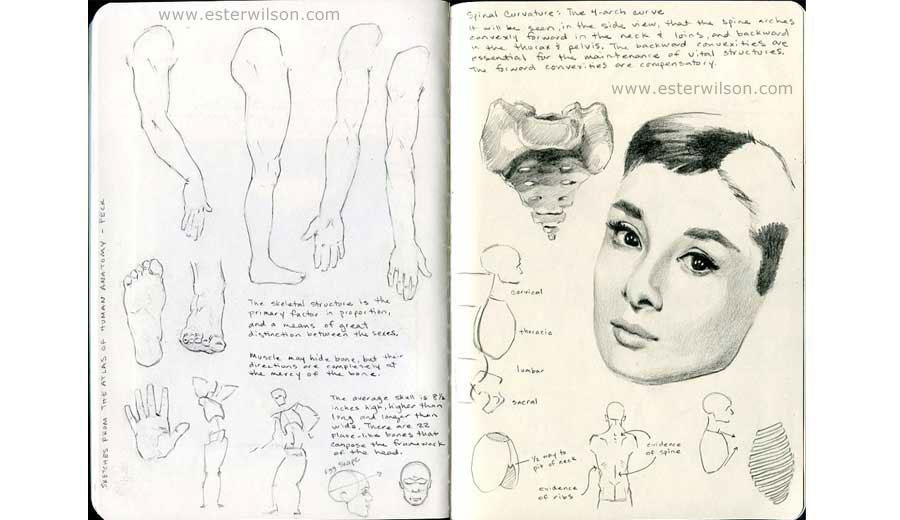 www.esterwilson.com
SKETCHES FROM THE ATLAS OF HUMAN ANATOMY - PECK
The skeletal structure is the
primary factor in proportion,
and a means of great
distinction between the sexes.
Muscle may hide bone, but their
directions are completely at
the mercy of the bone.
The average skull is 8 1/2
inches high, higher than
long and longer than
wide. There are 22
plate-like bones that
compose the framework
of the head.
egg shape
Spinal Curvature: The 4-arch curve
It will be seen, in the side view, that the spine arches
convexly forward in the neck & loins, and backward
in the thorax & pelvis. The backward convexities are
essential for the maintenance of vital structures.
The forward convexities are compensatory.
www.esterwilson.com
cervical
thoracic
lumbar
sacral
1/2 way to
pit of neck
evidence
of spine
evidence
of ribs